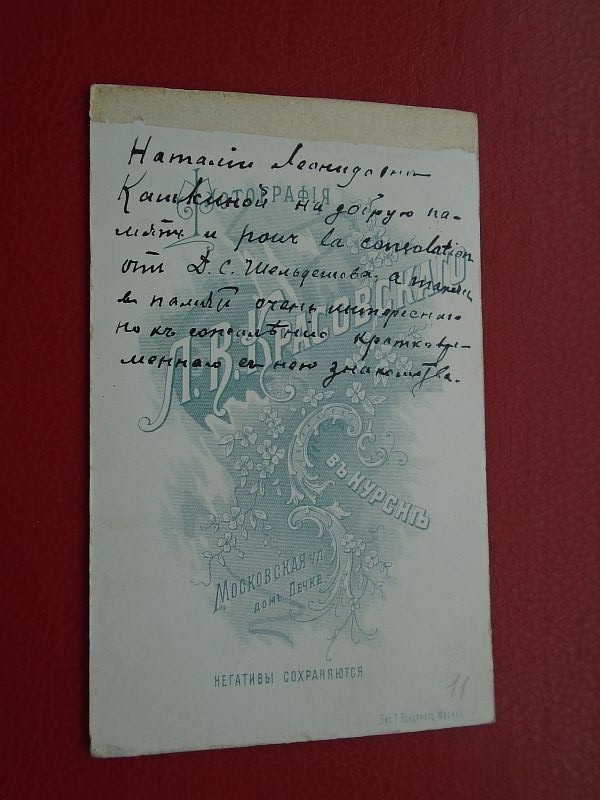 Наталіи Леонидовнѣ
Кашкиной на добрую па-
мять и pour la consolation
отъ Д. С. Шельдешова, а также
в память очень интереснаго
но къ сожалѣнію кратковре-
меннаго съ нею знакомства.
Фотографія
Л. В. Красовскаго
въ Курскѣ
Московская ул
домъ Печке
Негативы сохраняются
11
Москва